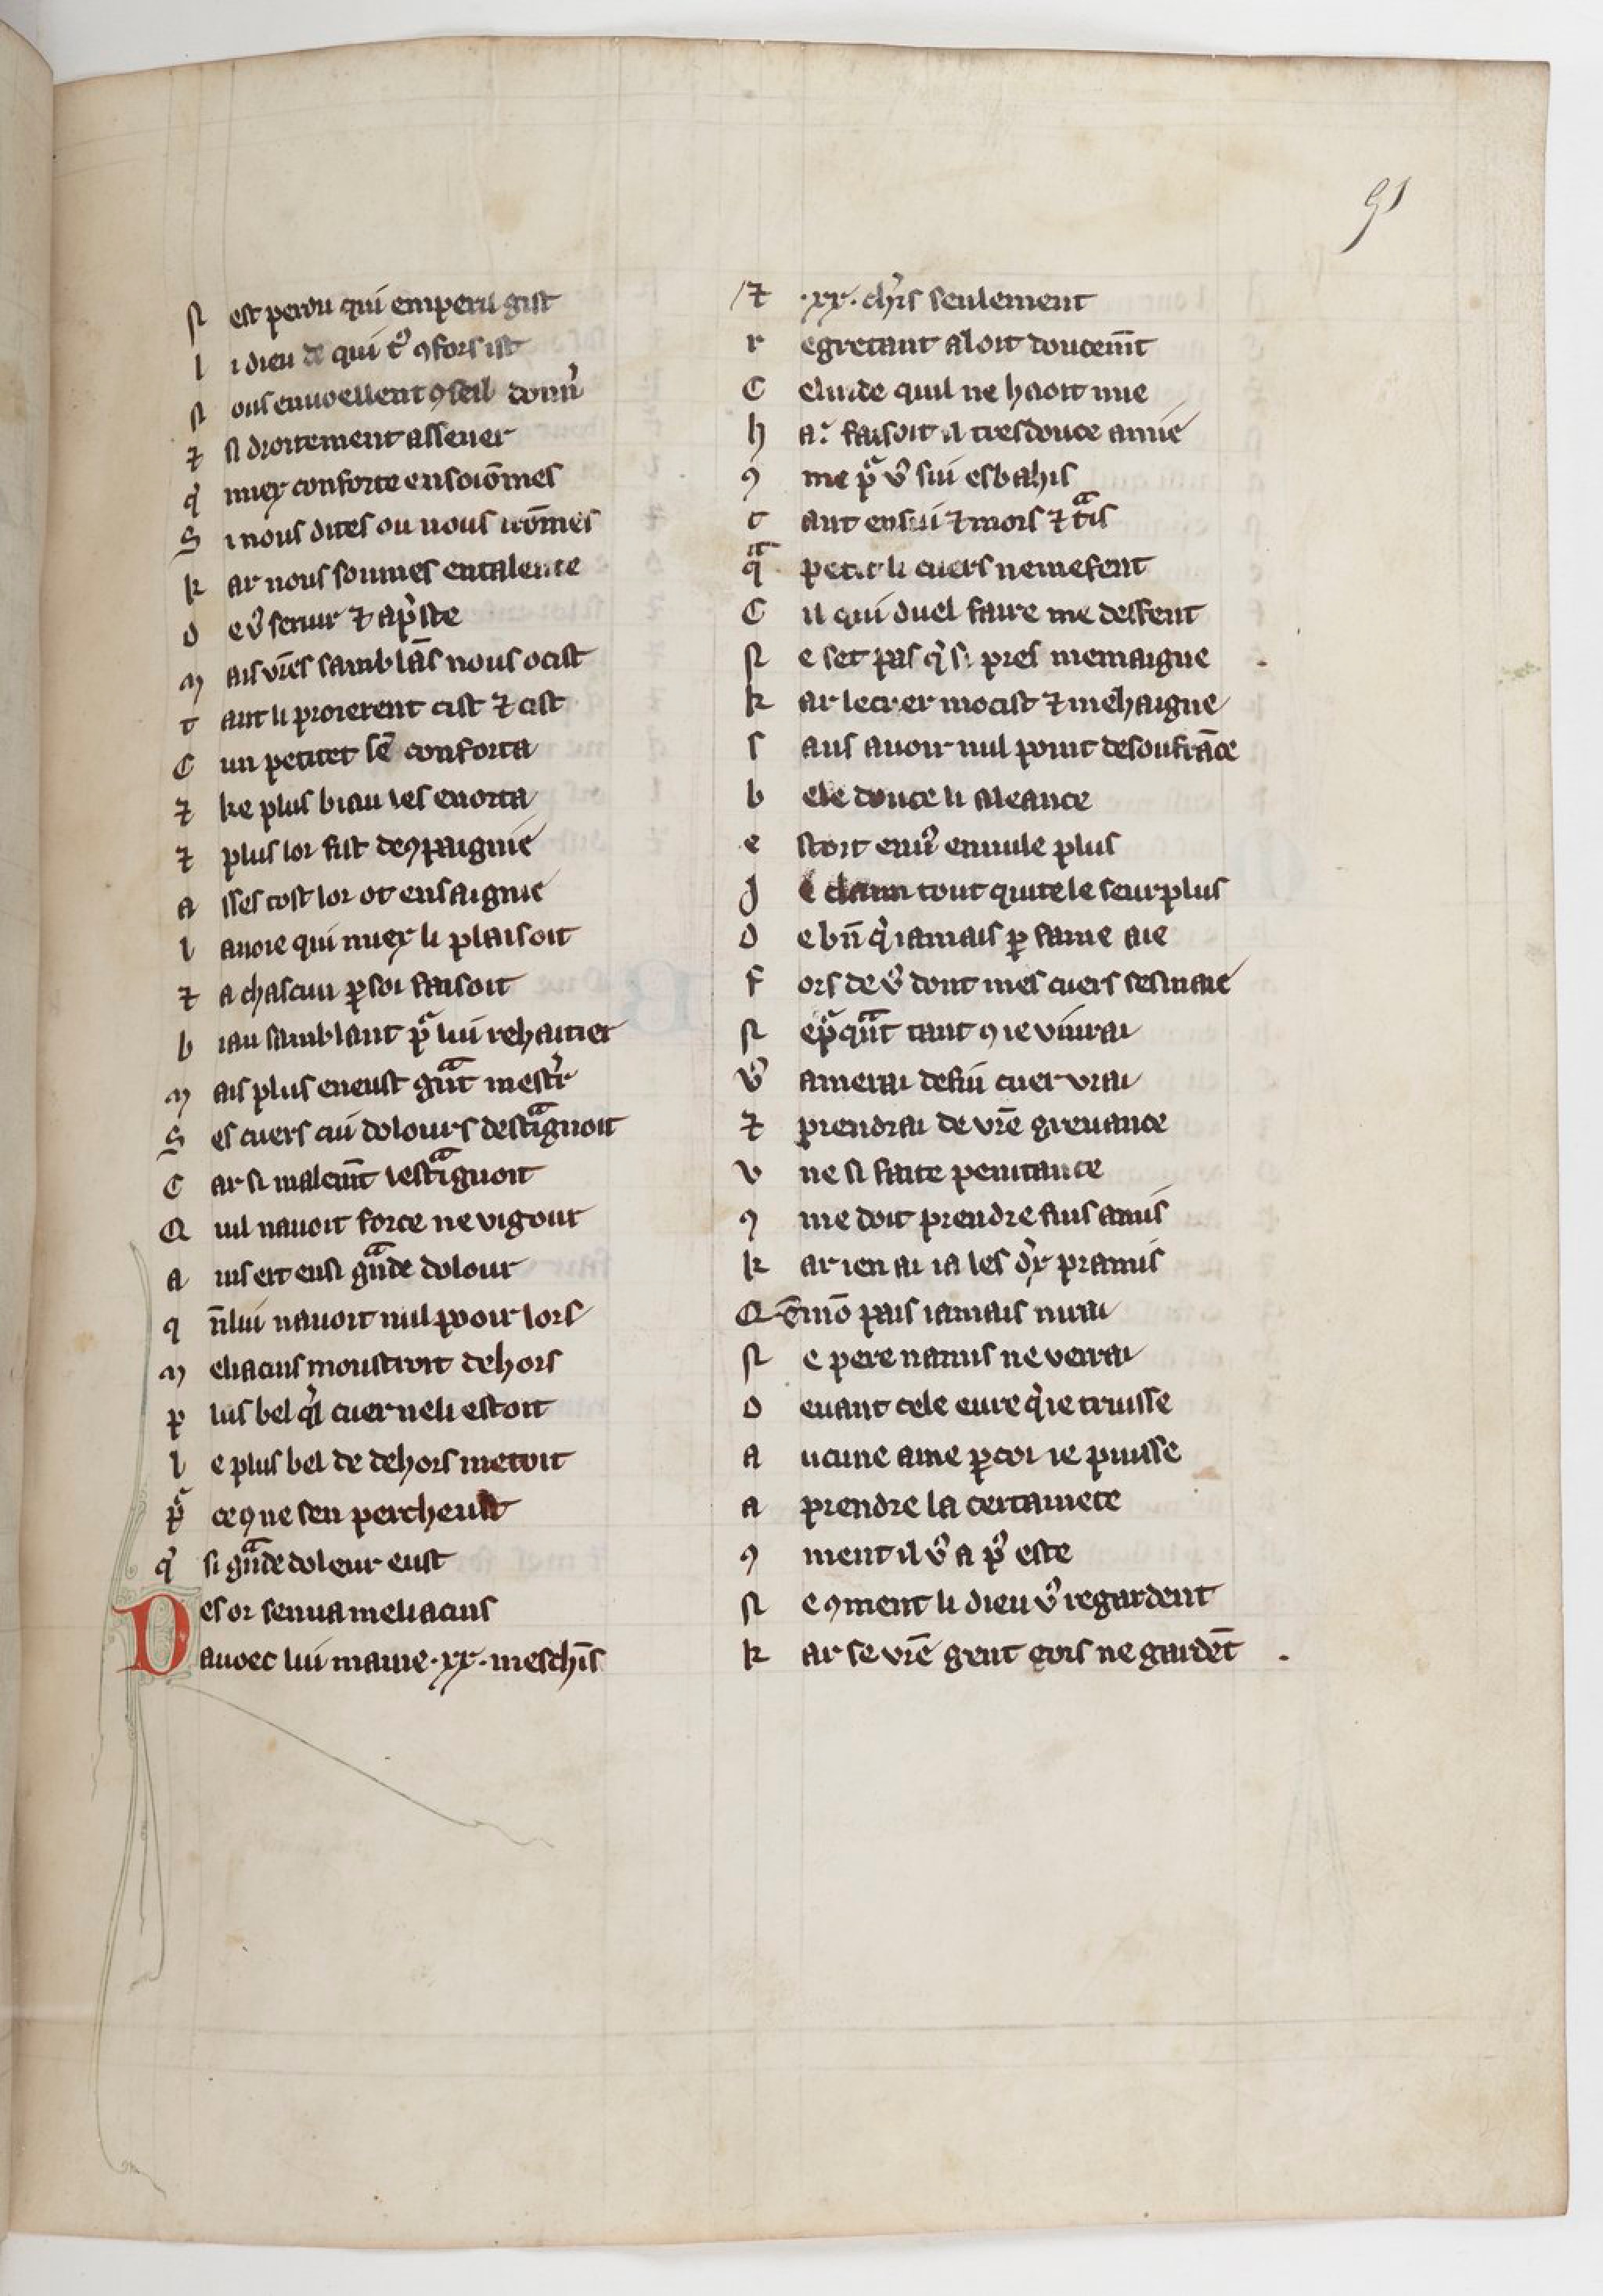 91
N est perdu qui emperil gist
l i dieu de qui tͦ ꝯfors ist
N ous enuoellent ꝯseil donn̾
⁊ si droitement assener
q̾ miex conforte en soiōmes
S i nous dites ou nous irōmes
k ar nous sommes entalente
d e vͦ seruir ⁊ ap̾ste
M ais vr̄es samblās nous ocist
t ant li proierent cist ⁊ cist
C un petitet sē conforta
⁊ ke plus biau les enorta
⁊ plus lor fist de ꝯpaignie
a sses tost lor ot ensaignie
l auoie qui miex li plaisoit
⁊ a chascun ꝑ soi faisoit
b iau samblant pᷓ lui rehaitier
M ais plus eneust gᷓnt mest̾r
S es cuers cui dolours destᷓignoit
C ar si malem̄t lestᷓignoit
Q uil nauoit force ne vigour
a ins ert ensi gᷓnde dolour
q n̄lui nauoit nul pooir lors
M eliacins moustroit dehors
p lus bel q̾l cuer neli estoit
l e plus bel de dehors metoit
pᷓ ce ꝯ ne sen percheust
q̾ si gᷓnde doleur eust
D es or senua meliacins
auoec lui maine ·xx· meschīs
⁊ ·xx· ch̾rs seulement
r egretant aloit doucem̄t
C elinde quil ne haoit mie
h a. faisoit il tresdouce amie
ꝯ me pᷓ vͦ sui esbahis
t ant en sui ⁊ mors ⁊ tᷓis
qᷓ petit li cuers ne me fent
C il qui duel faire me deffent
N e set pas q̾ si pres memaigne
k ar lecrer mocist ⁊ mehaigne
s ans auoir nul point de soufrāce
b ele douce li aleance
e stoit enu̾ enuule plus
J e claim tout quite le seurplus
d e bn̄ q̾ iamais ꝑ fame aie
f ors de vͦ dont mes cuers sesmaie
N epᷓqᷓnt tant ꝯ ie viurai
vͦ amerai de fin cuer vrai
⁊ prendrai de vr̄e greuance
v ne si faite penitance
ꝯ me doit prendre fins amis
k ar ien ai ia les d̾x pramis
Q ēmō pais iamais nirai
N e pere namis ne verrai
d euant cele eure q̾ ie truisse
a ucune ame ꝑ coi ie puisse
a prendre la certainete
ꝯ ment il vͦ a pͦ este
N e ꝯment li dieu vͦ regardent
k ar se vr̄e gent cors ne gardēt